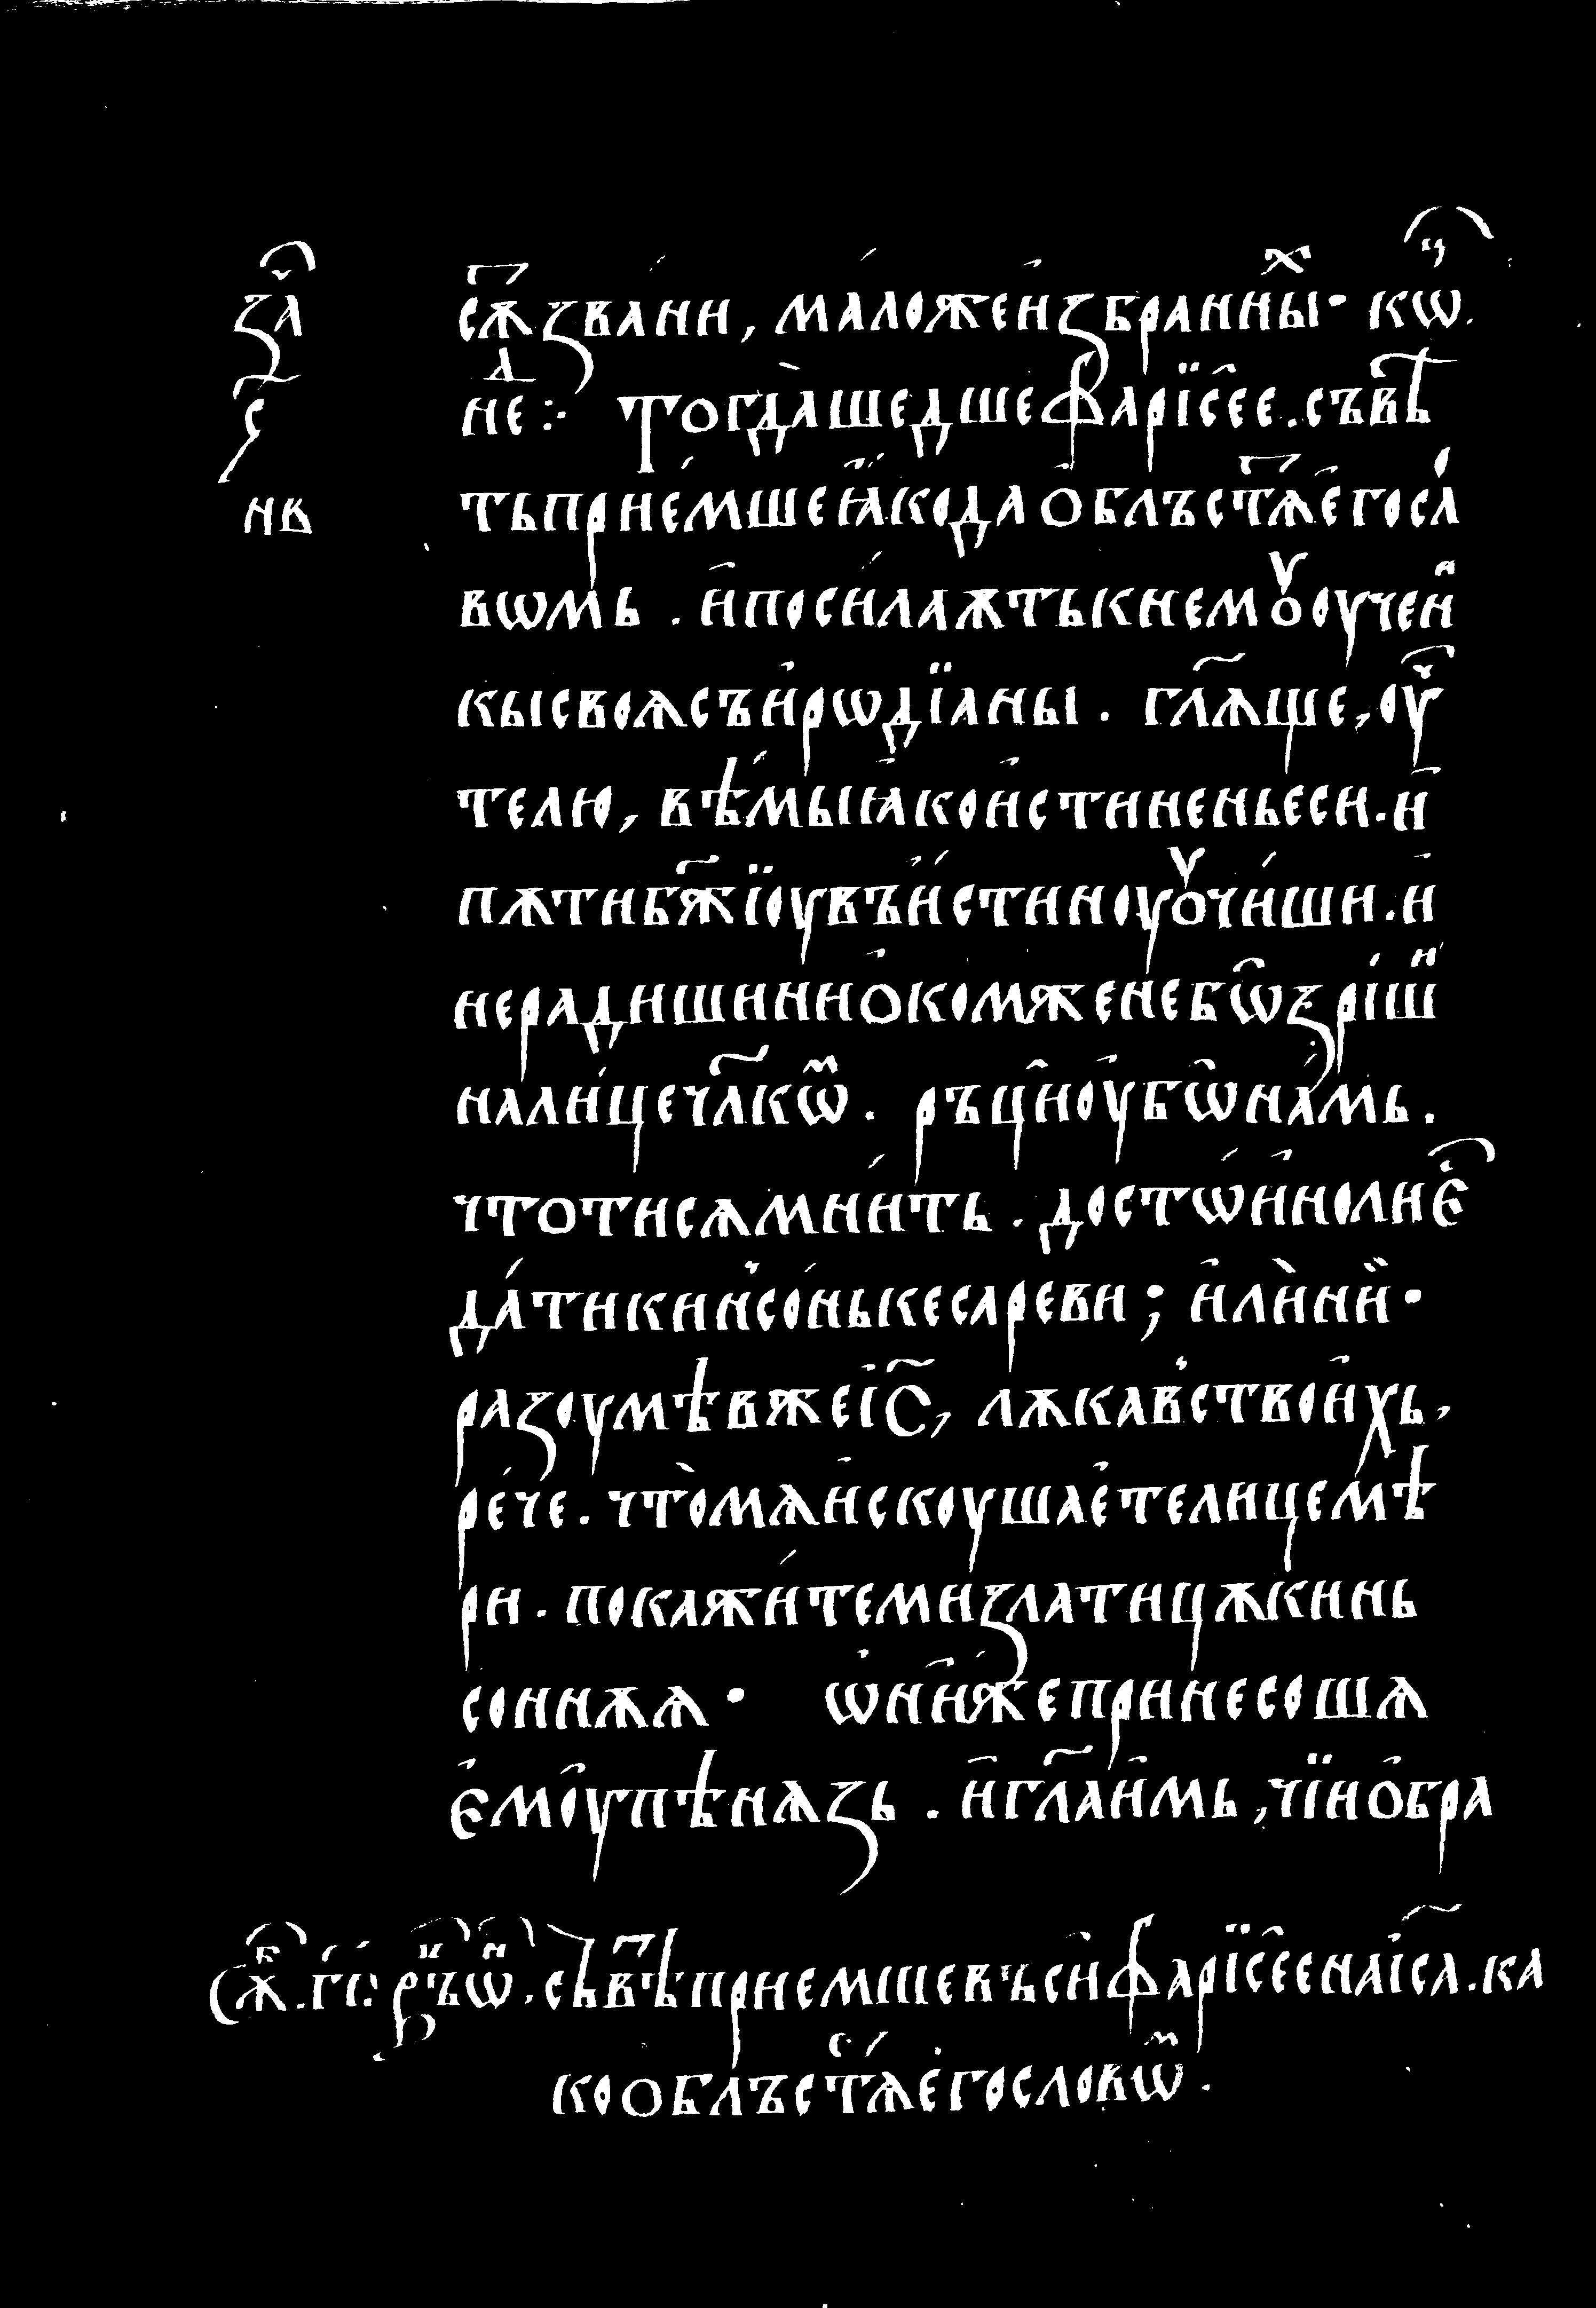 за҇ч сѫ҇т звани, мало же и҆збранны҆х. кѡ҇ц.
ѕ҂ не д҇ :· Тогда̀ шедше фарїсе҆е. съвѣ
нв ть прие́мше ꙗ҆ко да о҆блъстѧ҇т е҆го сл́о
вѡмь . и҆ посила́ѫть к немꙋ оучени
кы своѧ съ и҆рѡдїаны . гл҃ѧще, оу҆чи
телю, вѣ́мы ꙗ҆ко и҆стиненъ еси . и҆
пѫти бж҃їоу въ и҆́стинноу оу҆чи́ши . и҆
не радиши ни о҆ комже не бѡ̑ зрі́ши
на ли́це чл҃кѡⷨ . ръци̑ оу҆бѡ̑ на́мь .
что ти сѧ мни́ть . досто́и҆но ли е҆с҇
да́ти кинсо́нь кесареви ; и҆лѝ ни҆̀ ·
разоумѣв же і҆с҃, лѫкавство и҆хь,
ре́че . что̀ мѧ и҆скоушае҆те лицемѣ
ри . покажи́те ми златицѫ кинь
соннѫѧ · ѡ҆ни́ же принесошѧ
е҆мо̑у пѣнѧзь . и҆ гл҃а и҆мь , чїи о҆бра
Сѫ҇к . г҃і : ръⷰ҇ѡⷩ҇ . съвѣ҇т приемше вьси҆ фарїсе̑е на і҆с҃а . ка
ко о҆блъстѧⷮ е҆го словѡⷨ .